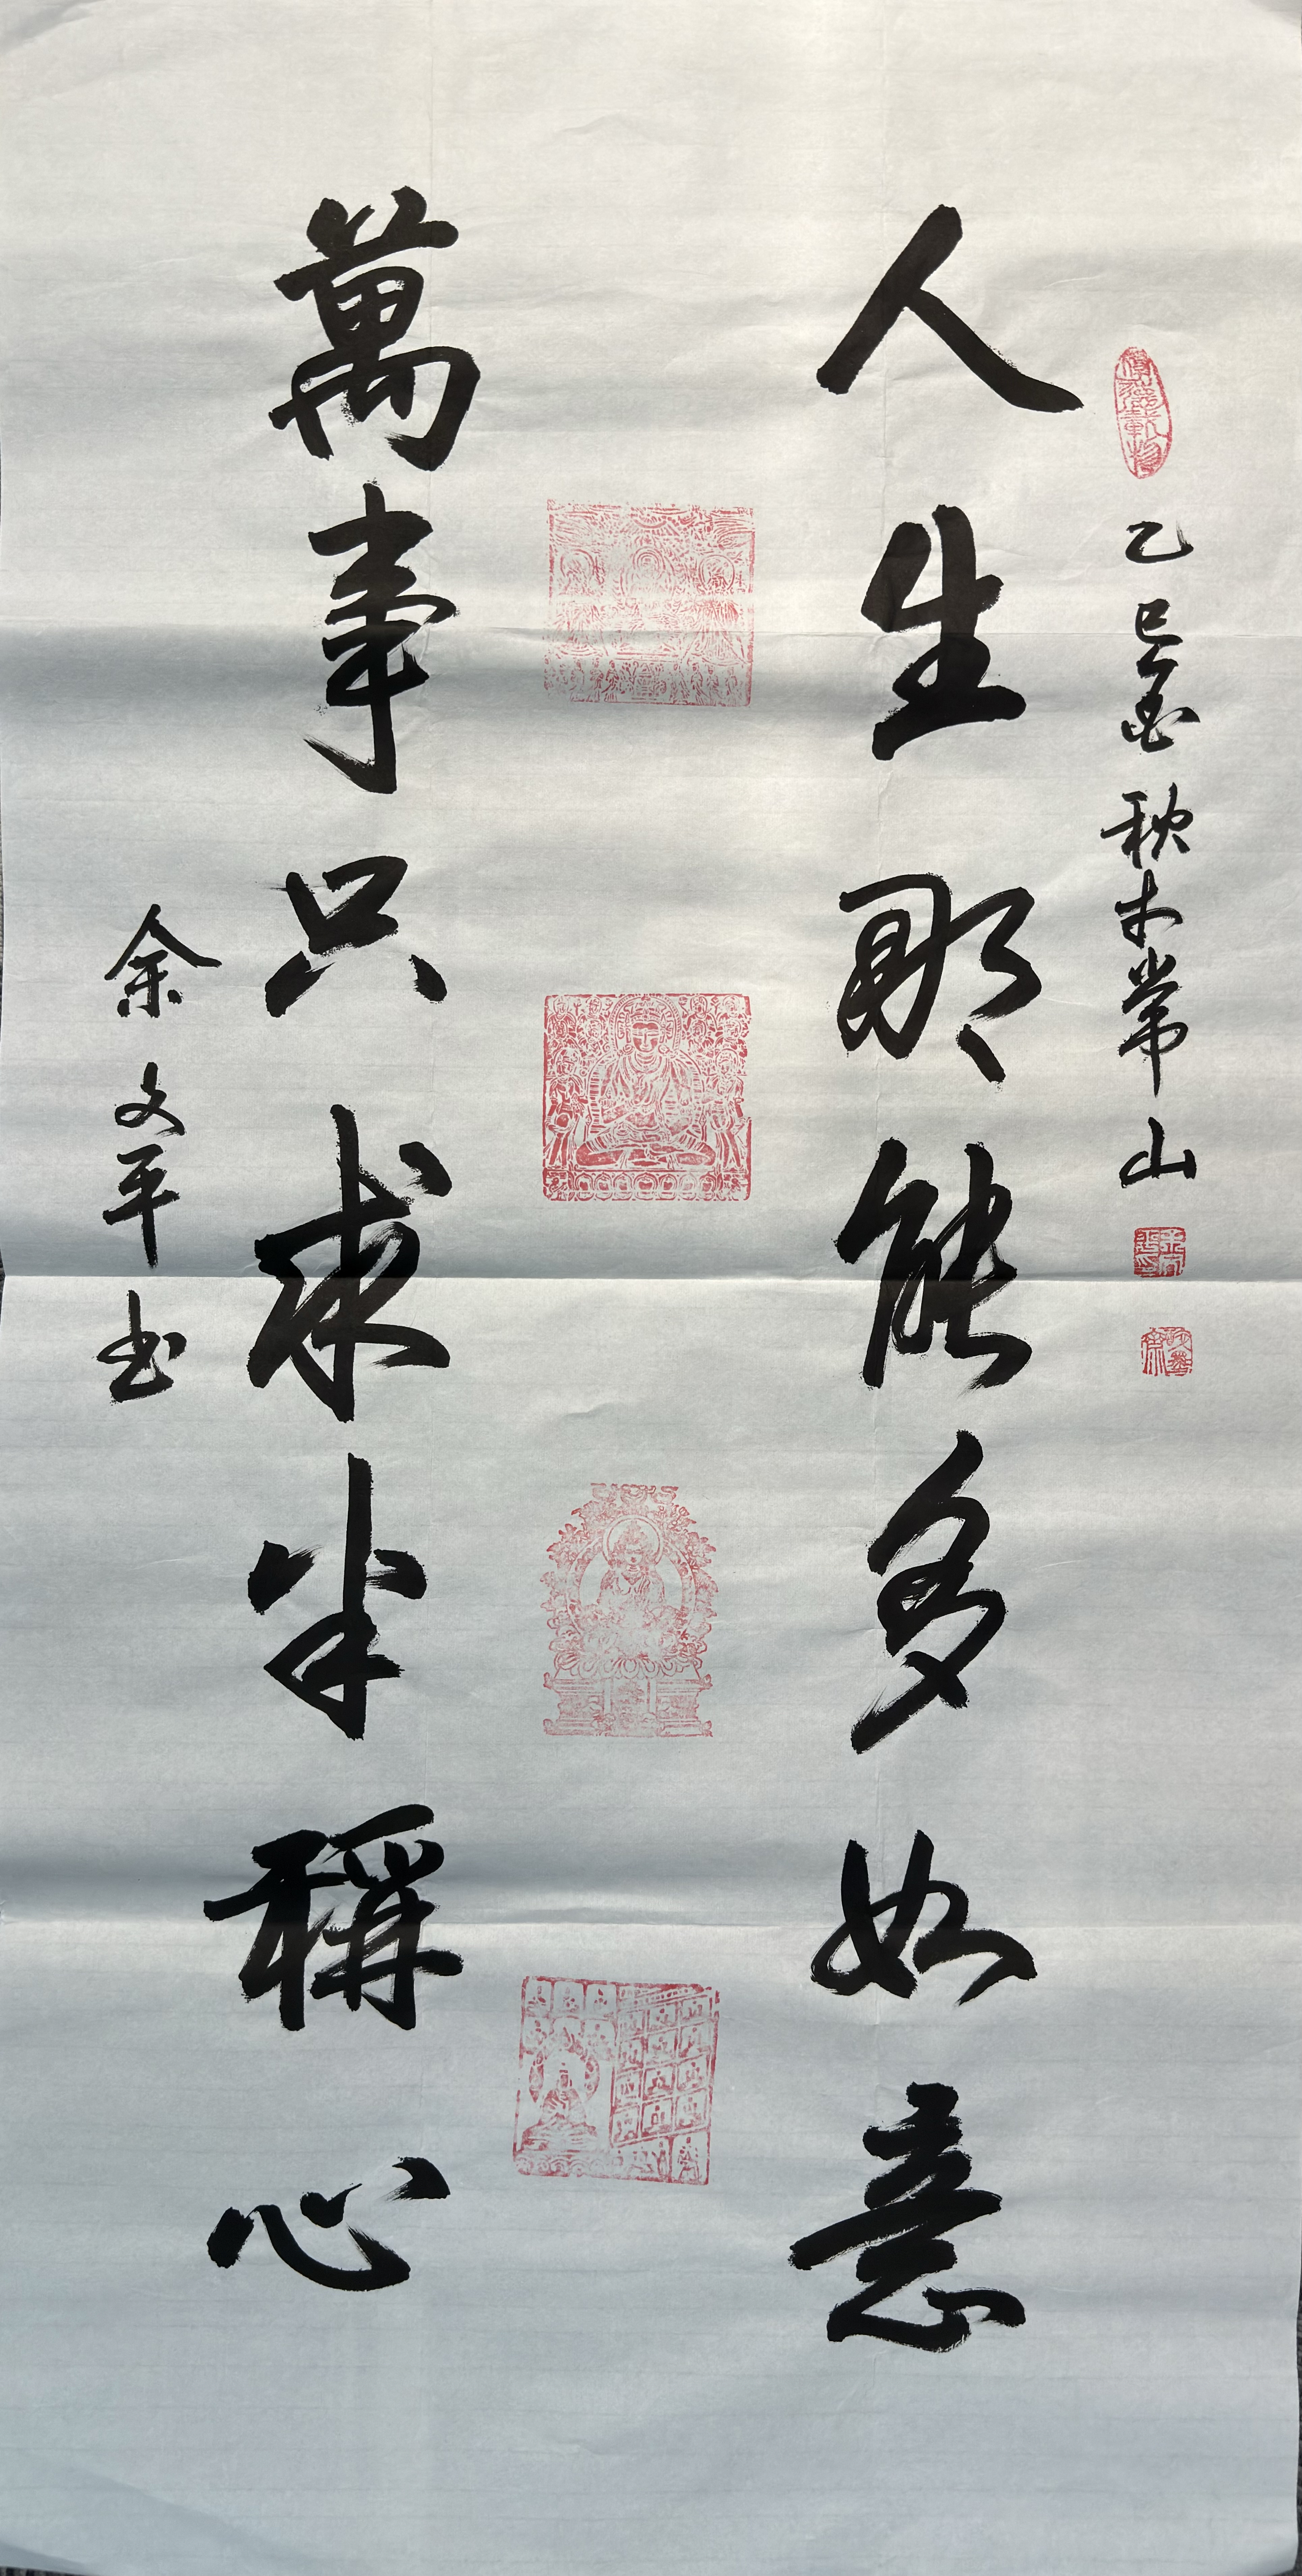 乙巳金秋于常山
人生那能多如意
萬事只求半稱心
余文平书